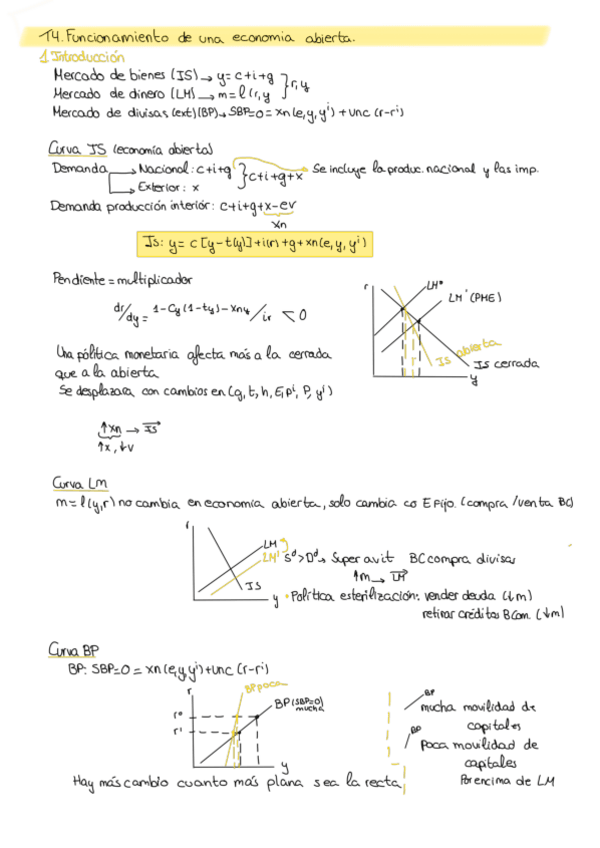 T4. Funcionamiento de una economia abierta.
1. Introducción
Mercado de bienes (IS) → y = c+i+g
Mercado de dinero (LM) → m = l(r,y
} r, y
Mercado de divisas (ext)(BP) → SBP=0 = xn(e,y,yⁱ) + unc (r-rⁱ)
Curva IS (economía abierta)
Demanda → Nacional: c+i+g
→ Exterior: x
} c+i+g+x → Se incluye la produc. nacional y las imp.
Demanda producción interior: c+i+g+x-ev
xn
Is: y = c[y-t(y)]+i(r)+g+xn(e,y,yⁱ)
Pendiente = multiplicador
dr/dy = 1-Cy(1-ty)-Xny/ir < 0
Una política monetaria afecta más a la cerrada
que a la abierta
Se desplazara con cambios en (g, t, h, E, Pⁱ, P, yⁱ)
r
LM⁰
LM' (PME)
IS abierta
IS cerrada
y
↑xn → IS
↑x, ↓v
Curva LM
m = l(y,r) no cambia en economía abierta, solo cambia co E fijo. (compra/venta BC)
r
LM
LM'
IS
y
Sᵈ > Dᵈ → Superavit BC compra divisas
↑m → LM
• Política esterilización: vender deuda (↓m)
retirar créditos B.Com. (↓m)
Curva BP
BP: SBP=0 = xn(e,y,yⁱ)+unc (r-rⁱ)
r
BP poca
BP (SBP=0)
mucha
r⁰
r¹
y
BP
mucha movilidad de
capitales
BP
Poca movilidad de
capitales
Por encima de LM
Hay más cambio cuanto más plana sea la recta